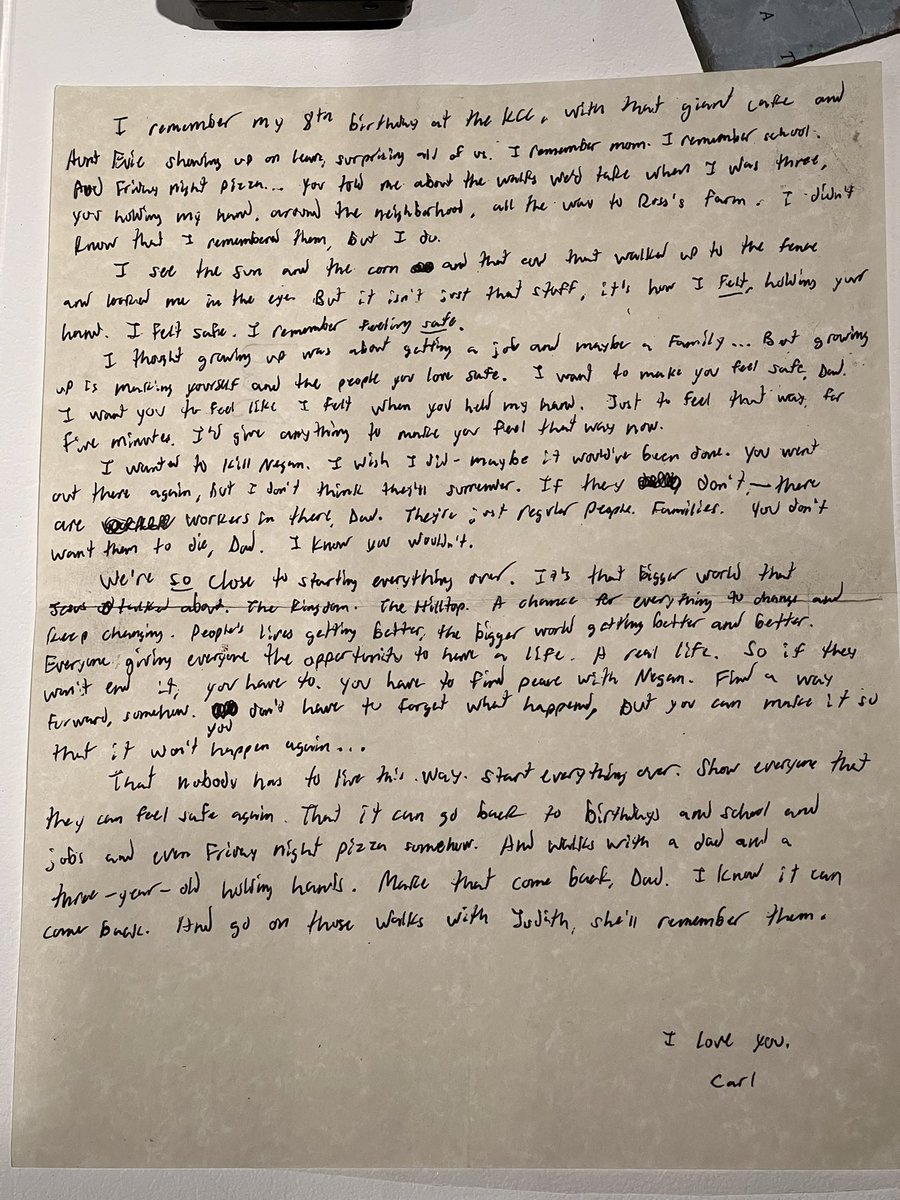 A
T
I remember my 8th birthday at the KCC, with that giant cake and
Aunt Evie showing up on leave, surprising all of us. I remember mom. I remember school.
And Friday night pizza... you told me about the walks we'd take when I was three,
you holding my hand, around the neighborhood, all the way to Ross's farm. I didn't
know that I remembered them, but I do.
I see the sun and the corn and that cow that walked up to the fence
and looked me in the eye. But it isn't just that stuff, it's how I felt, holding your
hand. I felt safe. I remember feeling safe.
I thought growing up was about getting a job and maybe a family... But growing
up is making yourself and the people you love safe. I want to make you feel safe, Dad.
I want you to feel like I felt when you held my hand. Just to feel that way, for
five minutes. I'd give anything to make you feel that way now.
I wanted to kill Negan. I wish I did - maybe it would've been done. you went
out there again, but I don't think they'll surrender. If they don't, - there
are workers in there, Dad. They're just regular people. Families. You don't
want them to die, Dad. I know you wouldn't.
We're so close to starting everything over. It's that bigger world that
Jesus talked about. The Kingdom. The Hilltop. A chance for everything to change and
keep changing. People's lives getting better, the bigger world getting better and better.
Everyone giving everyone the opportunity to have a life. A real life. So if they
won't end it, you have to. you have to find peace with Negan. Find a way
forward, somehow. you don't have to forget what happened, but you can make it so
that it won't happen again...
That nobody has to live this way. Start everything over. Show everyone that
they can feel safe again. That it can go back to birthdays and school and
jobs and even Friday night pizza somehow. And walks with a dad and a
three-year-old holding hands. Make that come back, Dad. I know it can
come back. And go on those walks with Judith, she'll remember them.
I love you.
Carl